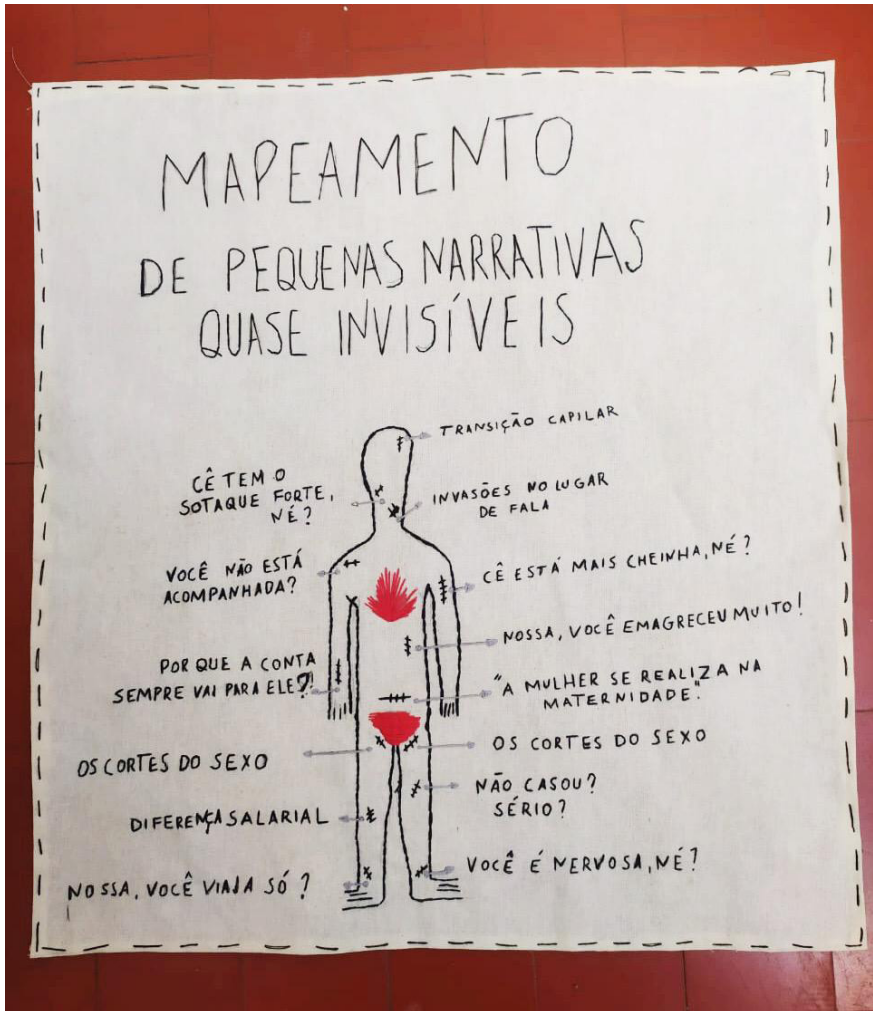 MAPEAMENTO
DE PEQUENAS NARRATIVAS
QUASE INVISÍVEIS
TRANSIÇÃO CAPILAR
CÊ TEM O
SOTAQUE FORTE,
NÉ?
INVASÕES NO LUGAR
DE FALA
VOCÊ NÃO ESTÁ
ACOMPANHADA?
CÊ ESTÁ MAIS CHEINHA, NÉ?
NOSSA, VOCÊ EMAGRECEU MUITO!
POR QUE A CONTA
SEMPRE VAI PARA ELE?!
"A MULHER SE REALIZA NA
MATERNIDADE."
OS CORTES DO SEXO
OS CORTES DO SEXO
NÃO CASOU?
SÉRIO?
DIFERENÇA SALARIAL
VOCÊ É NERVOSA, NÉ?
NOSSA, VOCÊ VIAJA SÓ?